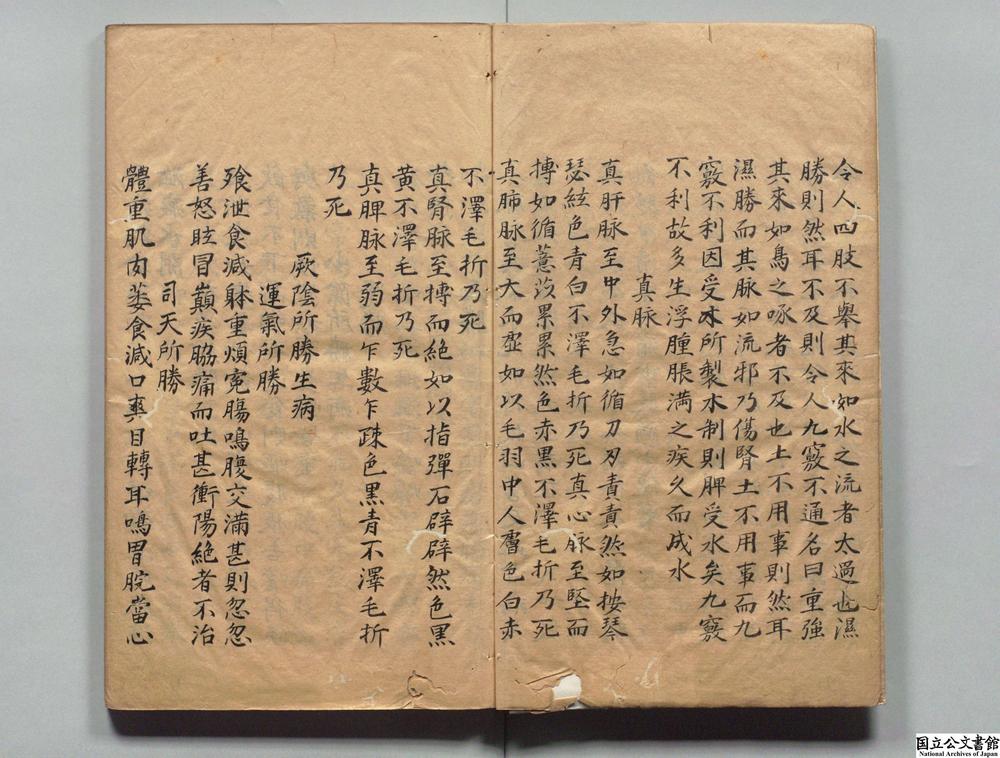 令人四肢不舉其來如水之流者太過也濕
勝則然耳不及則令人九竅不通名曰重強
其來如鳥之啄者不及也土不用事則然耳
濕勝而其脉如流邪乃傷腎土不用事而九
竅不利因受木所製木制則脾受水矣九竅
不利故多生浮腫脹満之疾久而成水
真脉
真肝脉至中外急如循刀刃責責然如按琴
瑟絃色青白不澤毛折乃死真心脉至堅而
搏如循薏苡累累然色赤黒不澤毛折乃死
真肺脉至大而虗如以毛羽中人膚色白赤
不澤毛折乃死
真腎脉至搏而絕如以指彈石辟辟然色黒
黄不澤毛折乃死
真脾脉至弱而乍數乍踈色黒青不澤毛折
乃死
厥陰所勝生病
運氣所勝
飱泄食減躰重煩冤腸鳴腹交滿甚則忽忽
善怒眩冒巔疾脇痛而吐甚衝陽絕者不治
司天所勝
體重肌肉萎食減口爽目轉耳鳴胃脘當心
国立公文書館
National Archives of Japan